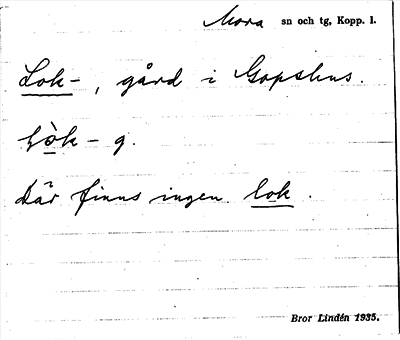 Mora sn och tg, Kopp. l.
Lok-, gård i Gopshus.
lòk- g.
Där finns ingen lok.
Bror Lindén 1935.